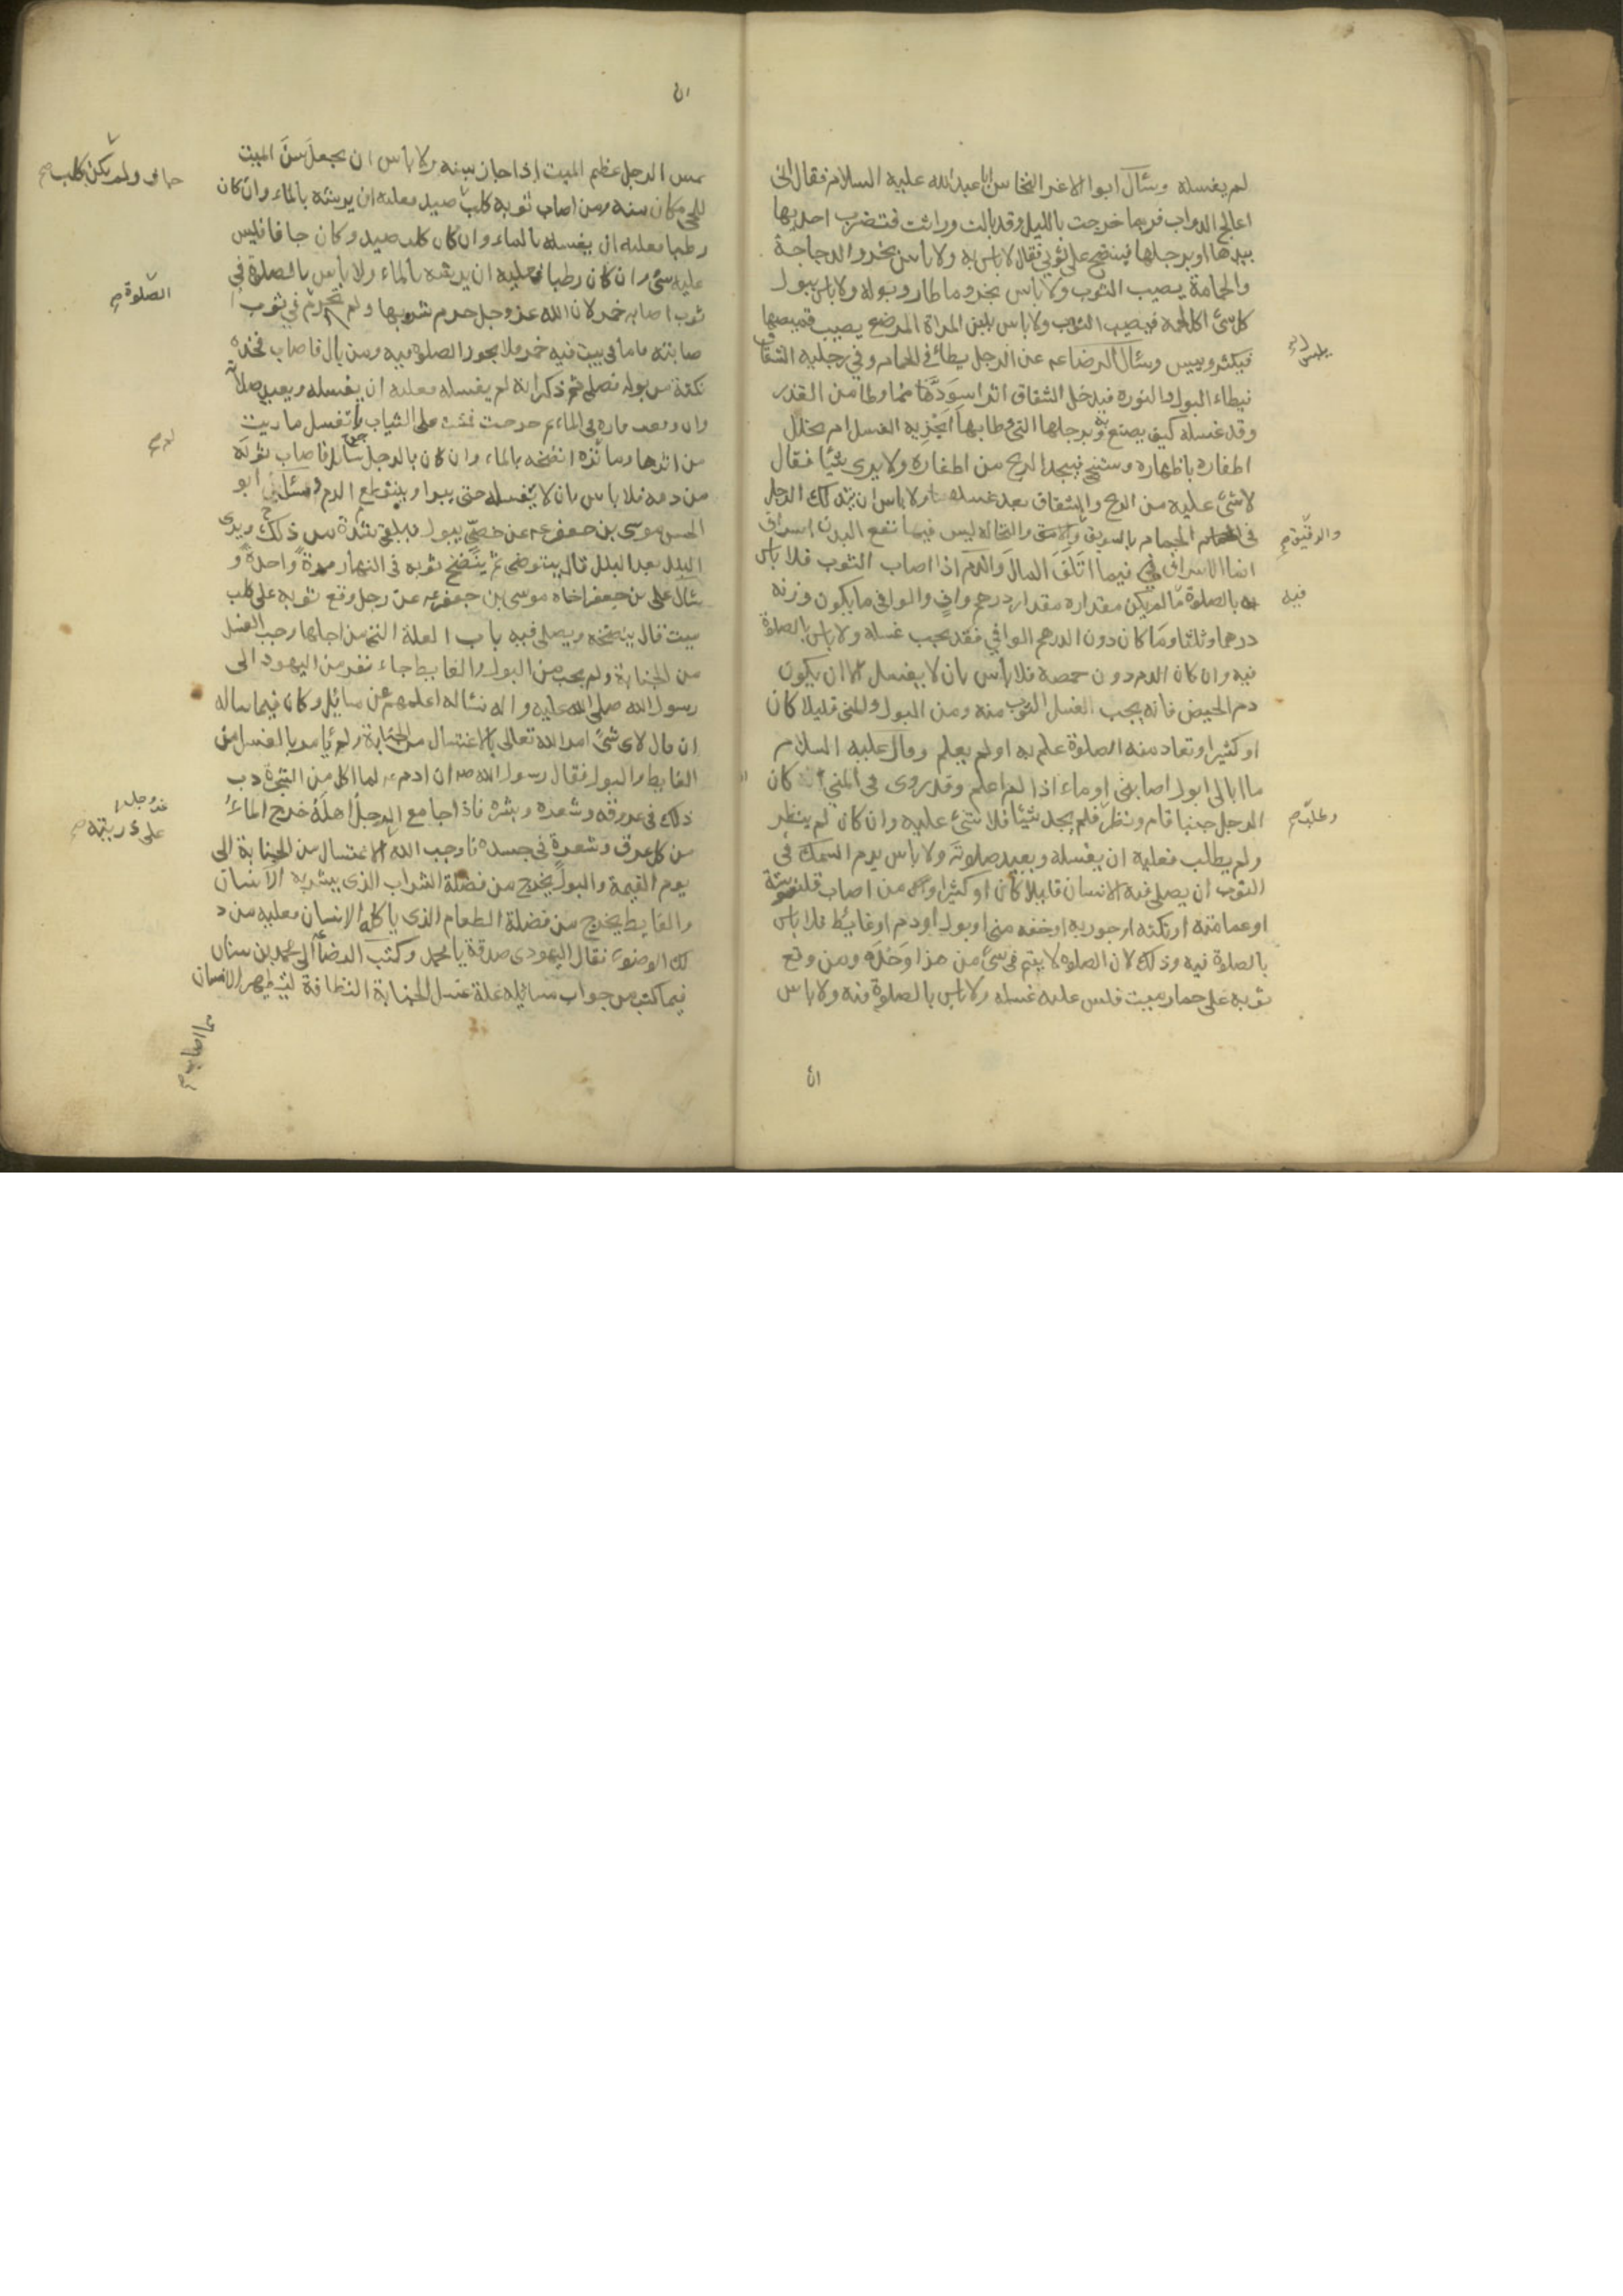 لم يغسله وسئال ابوا لاغر النخاس ابا عبد الله عليه السلام فقال انى
اعالج الدواب فربما خرجت بالليل وقد بالت وراثت فتضرب احديها
بيدها او برجلها فينضح على ثوبى فقال لا باس به ولا باس بخرو الدجاجة
والحمامة يصيب الثوب ولا باس بخرو ما طار وبوله ولا باس ببول
كل شئ اكل لحمه فيصيب الثوب ولا باس بلبن المراة المرضع يصيب قميصها
فيكثر وييبس وسئال الرضا عم عن الرجل يطائ فى الحمام وفى رجليه الشقاق
فيطاء البول والنورة فيدخل الشقاق اثر اسود مما وطا من القذر
وقد غسله كيف يصنع به وبرجلها التى وطا بها ايجزيه الغسل ام يخلل
اظفاره باظفاره ويستنجى فيجد الريح من اظفاره ولا يرى شيئا فقال
لا شئ عليه من الريح والشقاق بعد غسله ولا باس ان يتدلك الرجل
فى الحمام بالسويق والدقيق والنخاله ليس فيما نفع البدن اسراف
انما الاسراف فى فيما اتلف المال والدم اذا اصاب الثوب فلا باس
بالصلوة ما لم يكن مقداره مقدار درهم واف والوافى ما يكون وزنه
درهما وثلثا وما كان دون الدرهم الوافى فقد يجب غسله ولا باس بالصلوة
فيه وان كان الدم دون حمصة فلا باس بان لا يغسل الا ان يكون
دم الحيض فانه يجب الغسل الثوب منه ومن البول والمنى قليلا كان
او كثيرا وتعاد منه الصلوة علم به او لم يعلم وقال عليه السلام
ما ابالى ابول اصابنى او ماء اذا لم اعلم وقد روى فى المنى كان
الرجل جنبا قام ونظر فلم يجد شيئا فلا شئ عليه وان كان لم ينظر
ولم يطلب فعليه ان يغسله ويعيد صلوته ولا باس بدم السمك فى
الثوب ان يصلى فيه الانسان قليلا كان او كثيرا ومن اصاب قلنسوته
او عمامته او تكته او جوربه او خفه منى او بول او دم او غايط فلا باس
بالصلوة فيه وذلك لان الصلوة لا يتم فى شئ من هذا وحده ومن وقع
ثوبه على حمار ميت فليس عليه غسله ولا باس بالصلوة فيه ولا باس
ان
فيه
ان
يمس الرجل عظم الميت اذا جاز سنه ولا باس ان يجعل سن الميت
للحى مكان سنه ومن اصاب ثوبه كلب صيد فعليه ان يرشه بالماء وان كان
رطبا فعليه ان يغسله بالماء وان كان كلب صيد وكان جافا فليس
عليه شئ وان كان رطبا فعليه ان يرشه بالماء ولا باس بالصلوة فى
ثوب اصابه خمر لان الله عز وجل حرم شربها ولم يحرم فى ثوب ا
صابته فاما فى بيت فيه خمر فلا يجوز الصلوة فيه ومن بال فاصاب فخذه
نكتة من بوله فصلى ثم ذكر انه لم يغسله فعليه ان يغسله ويعيد صلاته
وان وقعت فاره فى الماء ثم خرجت فمشت على الثياب فاغسل ما رايت
من اثرها وما لم تره انضحه بالماء وان كان بالرجل جرح سائل فاصاب ثوبه
من دمه فلا باس بان لا يغسله حتى يبرا وينقطع الدم وسئال ابو
الحسن موسى بن جعفر عم عن خصى يبول فيلقى شدة من ذلك ويرى
البلل بعد البلل قال يتوضى ثم ينضح ثوبه فى النهار مرة واحدة و
سئال على بن جعفر اخاه موسى بن جعفر عم عن رجل وقع ثوبه على كلب
ميت قال ينضحه ويصلى فيه باب العلة التى من اجلها وجب الغسل
من الجنابة ولم يجب من البول والغايط جاء نفر من اليهود الى
رسول الله صلى الله عليه واله فسئاله اعلمهم عن مسائل وكان فيما ساله
ان قال لاى شئ امر الله تعالى بالاغتسال من الجنابة ولم يامر بالغسل من
الغايط والبول فقال رسول الله ص ان ادم عم لما اكل من الشجرة دب
ذلك فى عروقه وشعره وبشره فاذا جامع الرجل اهله خرج الماء
من كل عرق وشعرة فى جسده فاوجب الله الاغتسال من الجنابة الى
يوم القيمة والبول يخرج من فضلة الشراب الذى يشربه الانسان
والغايط يخرج من فضلة الطعام الذى ياكله الانسان فعليه من ذ
لك الوضوء فقال اليهودى صدقت يا محمد وكتب الرضا الى محمد بن سنان
فيما كتب من جواب مسائله علة غسل الجنابة النظافة ليتطهر الانسان
جاف ولم يكن كلب
الصلوة
عز وجل
على ذريته
مما اصابه